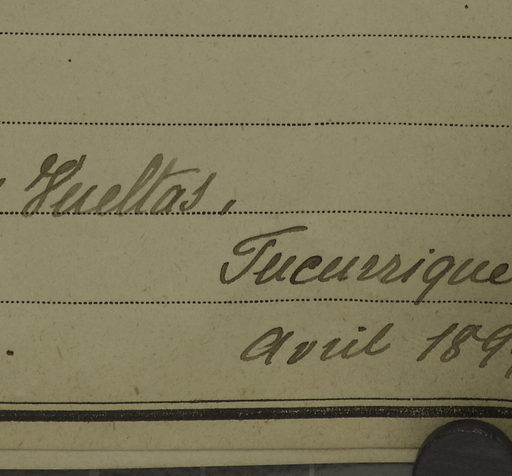 Vueltas,
Tucurrique
Avril 189